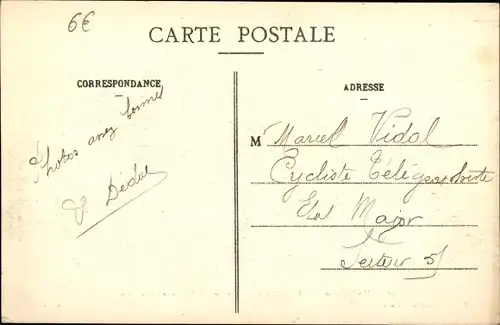 6€
CARTE POSTALE
CORRESPONDANCE
Photos assez bonnes
ADRESSE
M Marcel Vidal
Cycliste Télégraphiste
Etat Major
Secteur 5